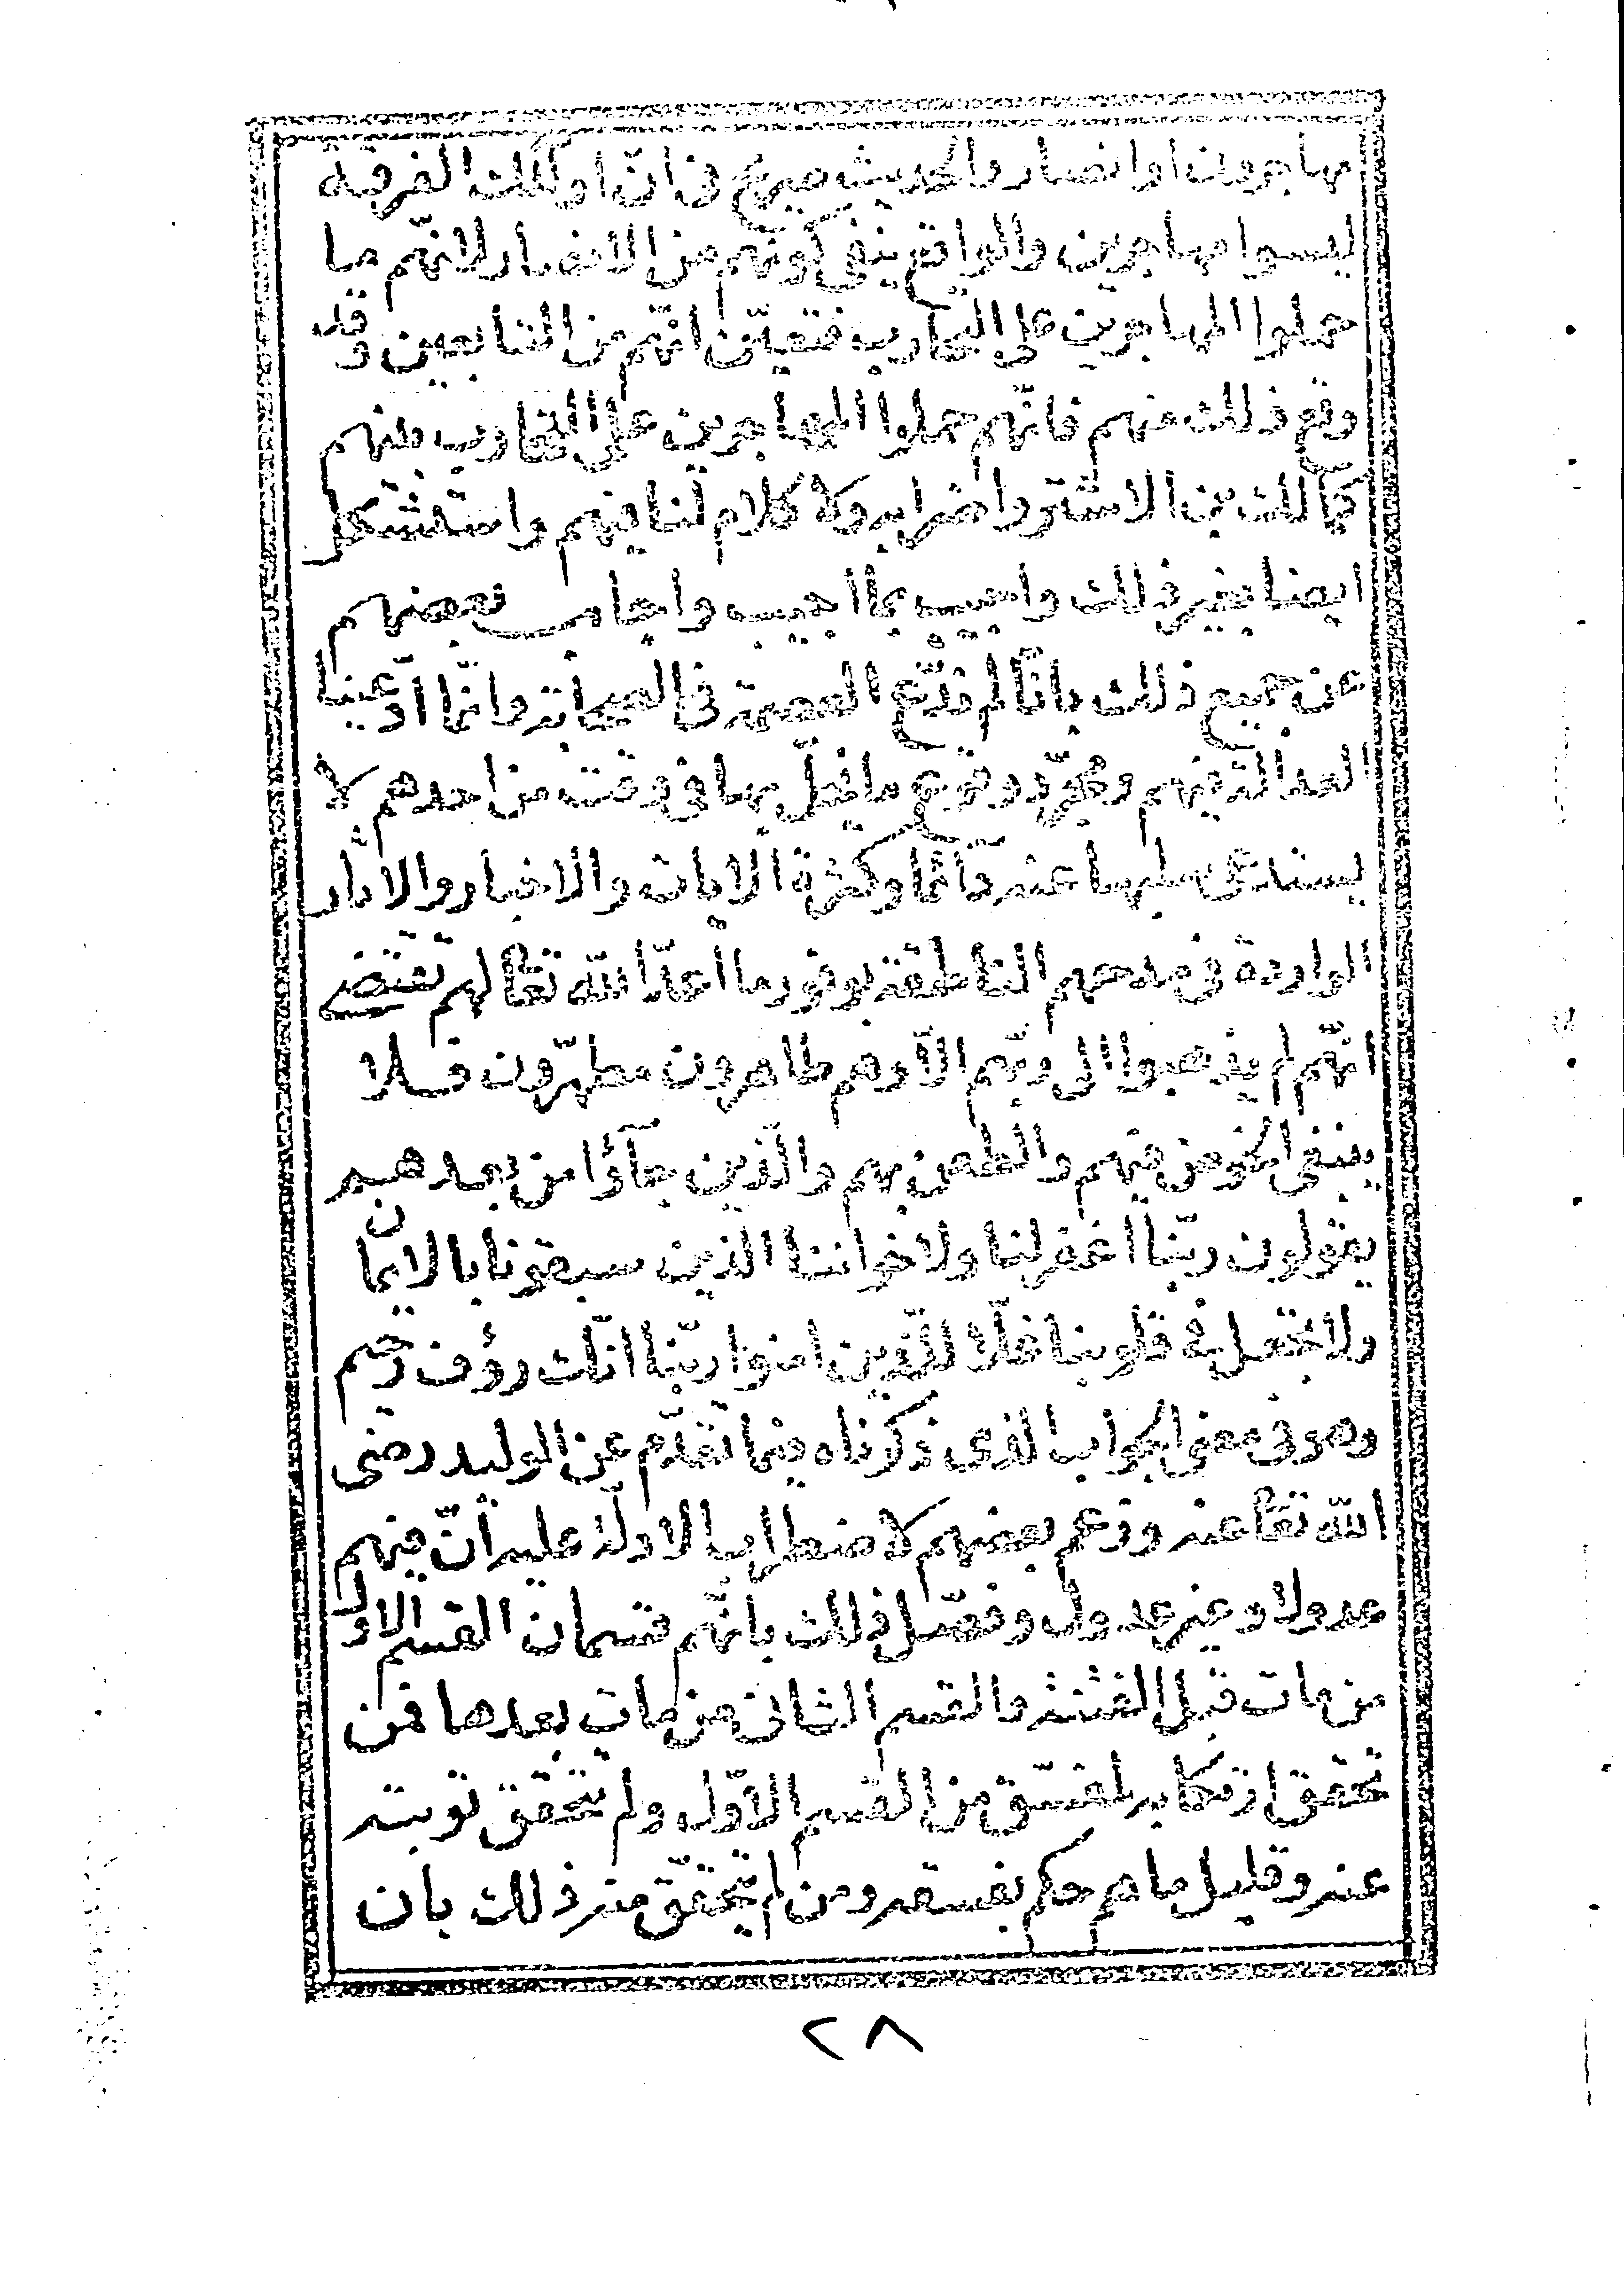 مهاجرون او انصار والحديث صريح في ان اولئك الفرقة
ليسوا مهاجرين والواقع ينفي كونهم من الانصار لانهم ما
حملوا المهاجرين على التحارب فتعيّن انّهم من التابعين وقد
وقع ذلك منهم فانّهم حملوا المهاجرين على التحارب منهم
كمالك بن الاشتر واضرابه ولا كلام لنا فيهم واستشكل
ايضا بغير ذلك واجيب بما اجيب واجاب بعضهم
عن جميع ذلك بانّا لم ندّع العصمة في الصحابة وانّما ادّعينا
العدالة فيهم ومجرّد وقوع ما يخلّ بها في وقت من احدهم لا
يستدعى سلبها عنه دائما وكثرة الايات والاخبار والاثار
الواردة في مدحهم الناطقة بوفور ما اعدّ الله تعالى لهم تقتضى
انّهم لم يذهبوا الى ربّهم الّا وهم طاهرون مطهرّون فلا
ينبغى الخوض فيهم والطعن بهم والّذين جآؤا من بعدهم
يقولون ربّنا اغفر لنا ولاخواننا الذين سبقونا بالايمان
ولا تجعل في قلوبنا غلّا للّذين امنوا ربّنا انّك رؤف رحيم
وهو في معنى الجواب الذى ذكرناه فيما تقدّم عن الوليد رضى
الله تعالى عنه وزعم بعضهم لاضطراب الادلّة عليه أنّ فيهم
عدولا وغير عدول وفصّل ذلك بانّهم قسمان القسم الاول
من مات قبل الفتنة والقسم الثانى من مات بعدها فمن
تحقق ارتكابه لمفسّق من القسم الاوّل ولم تتحقق توبته
عنه وقليل ما هم حكم بفسقه ومن لم يتحقّق منه ذلك بان
٢٨